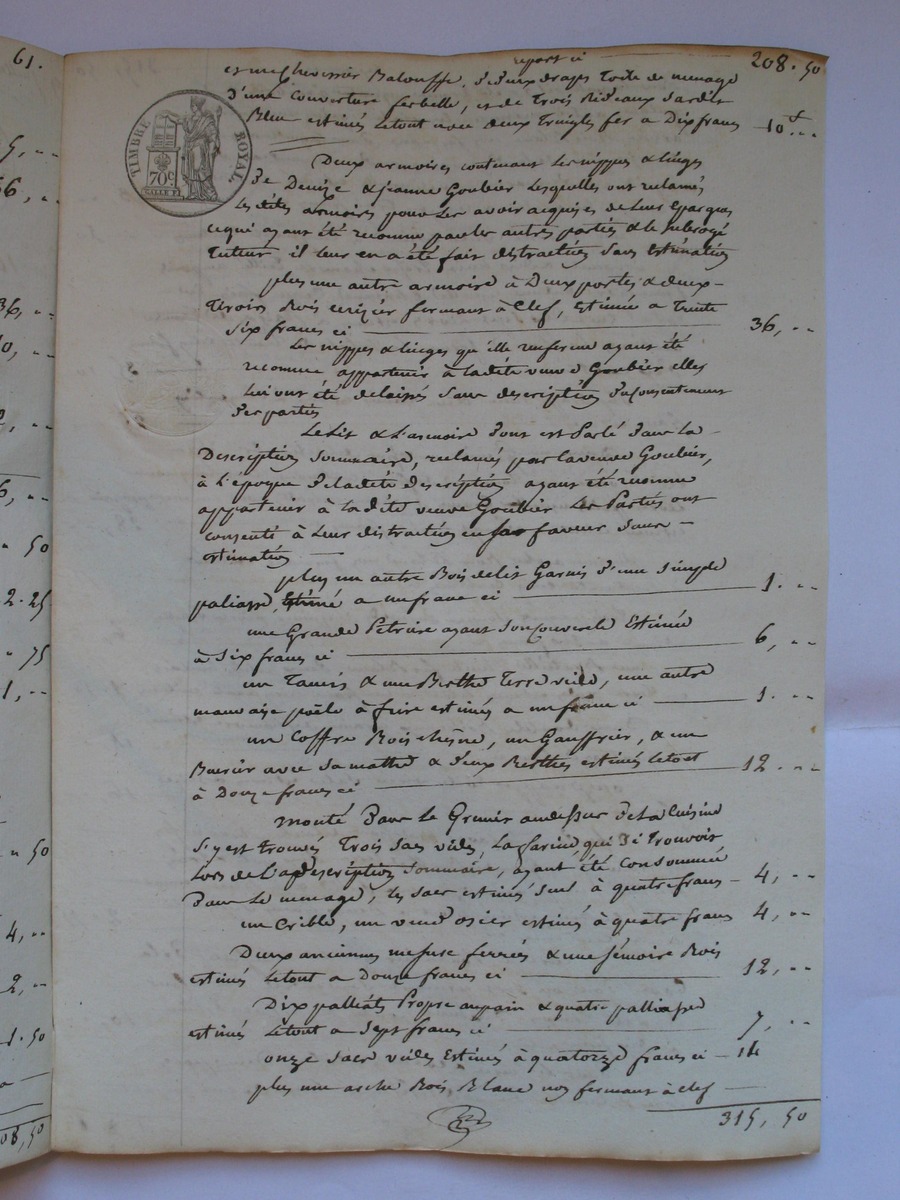 61.
report ci
208. 50
et un chevessier Balouffe, De Deux draps Toile de menage
D'une Couverture ferbelle, et de Trois Rideaux Sardis
Bleu estimés Letout avec deux Tringles fer a Dix francs 10 f ..
TIMBRE ROYAL
70c.
Deux armoires contenant Les nippes & linges
De Denize & jeanne Goubier Lesquelles ont reclamés
Les dites armoires pour Les avoir acquises de Leur Epargnes
cequi ayant été reconnu par les autres parties & le Subrogé
Tuteur, il leur en a été fait distraction Sans Estimation
plus une autre armoire à Deux portes & deux
Tiroirs Bois cerizier fermant à Clef, Estimée a Trente
Six francs ci 36, ..
Les nippes & linges qu'elle renferme ayant été
reconnu appartenir à ladite veuve Goubier elles
Lui ont été delaissés Sans description Du Consentement
Des parties
Le Lit & L'armoire Dont est Parlé Dans la
Description Sommaire, reclamés par la veuve Goubier,
à L'époque De ladite description ayant été reconnu
appartenir à ladite veuve Goubier Les Parties ont
consenté à Leur distraction en sa faveur Sans
estimation
plus un autre Bois de lit Garnis D'une Simple
paliasse, Estimé a un franc ci 1. ..
une Grande Petriere ayant Son Couvercle Estimée
à Six francs ci 6, ..
un Tamis & une Berthe Terre vuide, une autre
mauvaise poële à frire estimés a un franc ci 1. ..
un Coffre Bois chesne, un Gauffrier, & un
Burier avec Sa matthe & Deux Berthes estimés Letout
à Douze francs ci 12. ..
Monté Dans Le Grenier au dessus De La Cuisine
S'y est trouvés Trois Sacs vides, La farine qui S'i Trouvoit
Lors de La Description Sommaire, ayant été Consommée
Dans Le menage, les sacs estimés Seul à quatre francs 4, ..
un Crible, un osier estimés à quatre francs 4, ..
Deux anciennes mesure ferrées & une Bois
estimés Letout a Douze francs ci 12, ..
Dix palliats Propre au pain & quatre palliasse
estimés Letout a Sept francs ci 7, ..
onze Sacs vides Estimés à quatorze francs ci 14
plus une arche Bois Blanc non fermant à clef
315, 50